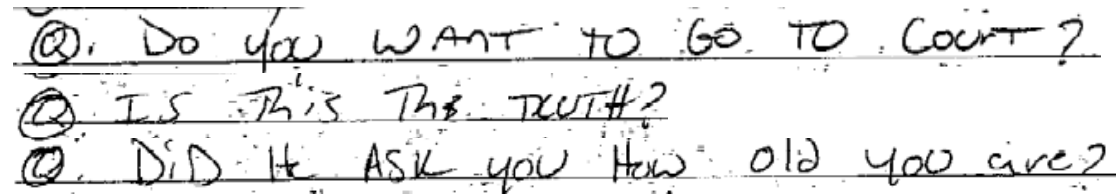 Q. Do you WANT TO GO TO COURT?
Q. IS This The TRUTH?
Q. DiD He ASK you How old you are?